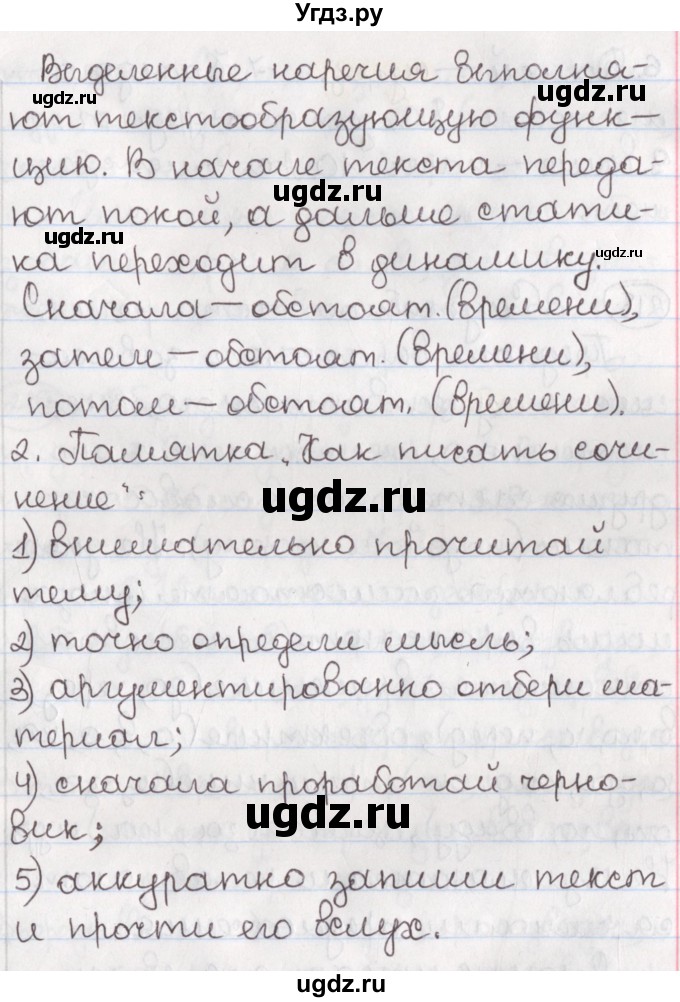 Угдз.ру
Выделенные наречия выполня-
ugdz.ru ugdz.ru
ют текстообразующую функ-
цию. В начале текста переда-
ugdz.ru
ют покой, а дальше стати-
ugdz.ru
ка переходит в динамику.
ugdz.ru
Сначала – обстоят. (времени),
затем – обстоят. (времени),
потом – обстоят. (времени).
2. Памятка „Как писать сочи-
нение“:
ugdz.ru
1) внимательно прочитай
тему;
2) точно определи мысль;
3) аргументированно отбери ма-
териал;
4) сначала проработай черно-
вик;
ugdz.ru
5) аккуратно запиши текст
и прочти его вслух.
ugdz.ru